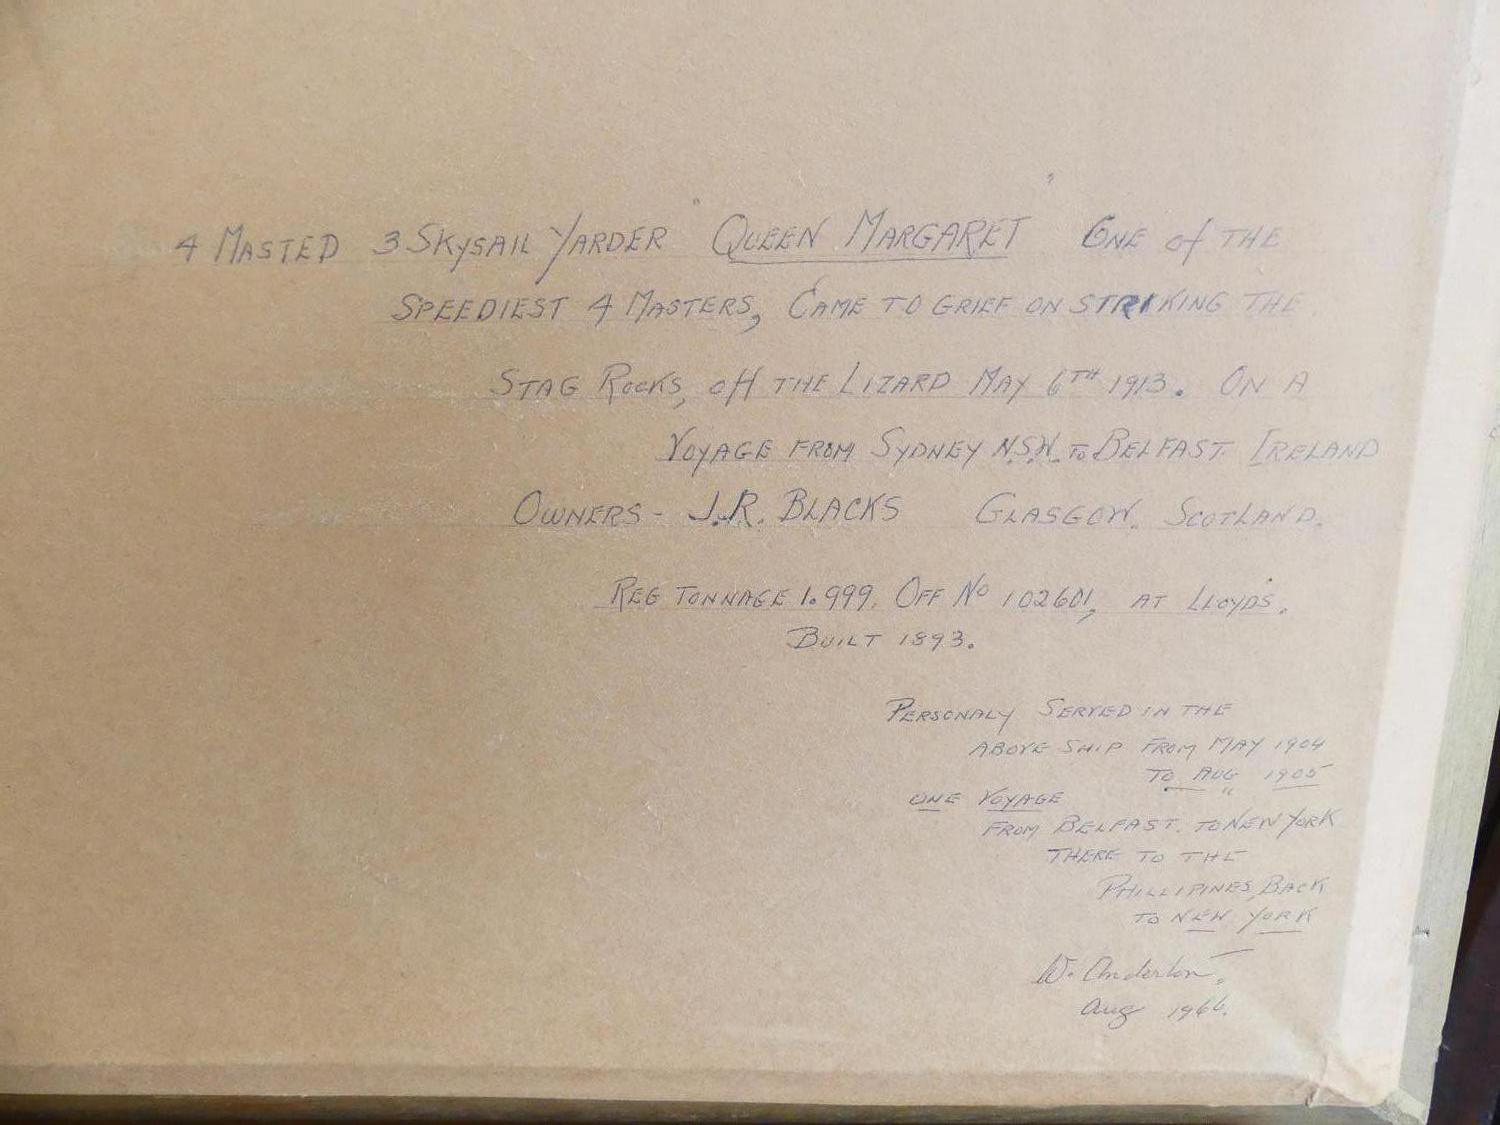 4 MASTED 3 SKYSAIL YARDER "QUEEN MARGARET" ONE of THE
SPEEDIEST 4 MASTERS, CAME TO GRIEF ON STRIKING THE
STAG ROCKS, off THE LIZARD MAY 6TH 1913. ON A
VOYAGE FROM SYDNEY N.S.W. TO BELFAST IRELAND
OWNERS - J.R. BLACKS GLASGOW. SCOTLAND.
REG TONNAGE 1.999. OFF NO 102601, AT LLOYDS.
BUILT 1893.
PERSONALY SERVED IN THE
ABOVE SHIP FROM MAY 1904
TO AUG 1905
ONE VOYAGE
FROM BELFAST. TO NEW YORK
THERE TO THE
PHILLIPINES, BACK
TO NEW YORK
W. Anderton.
Aug 1966.